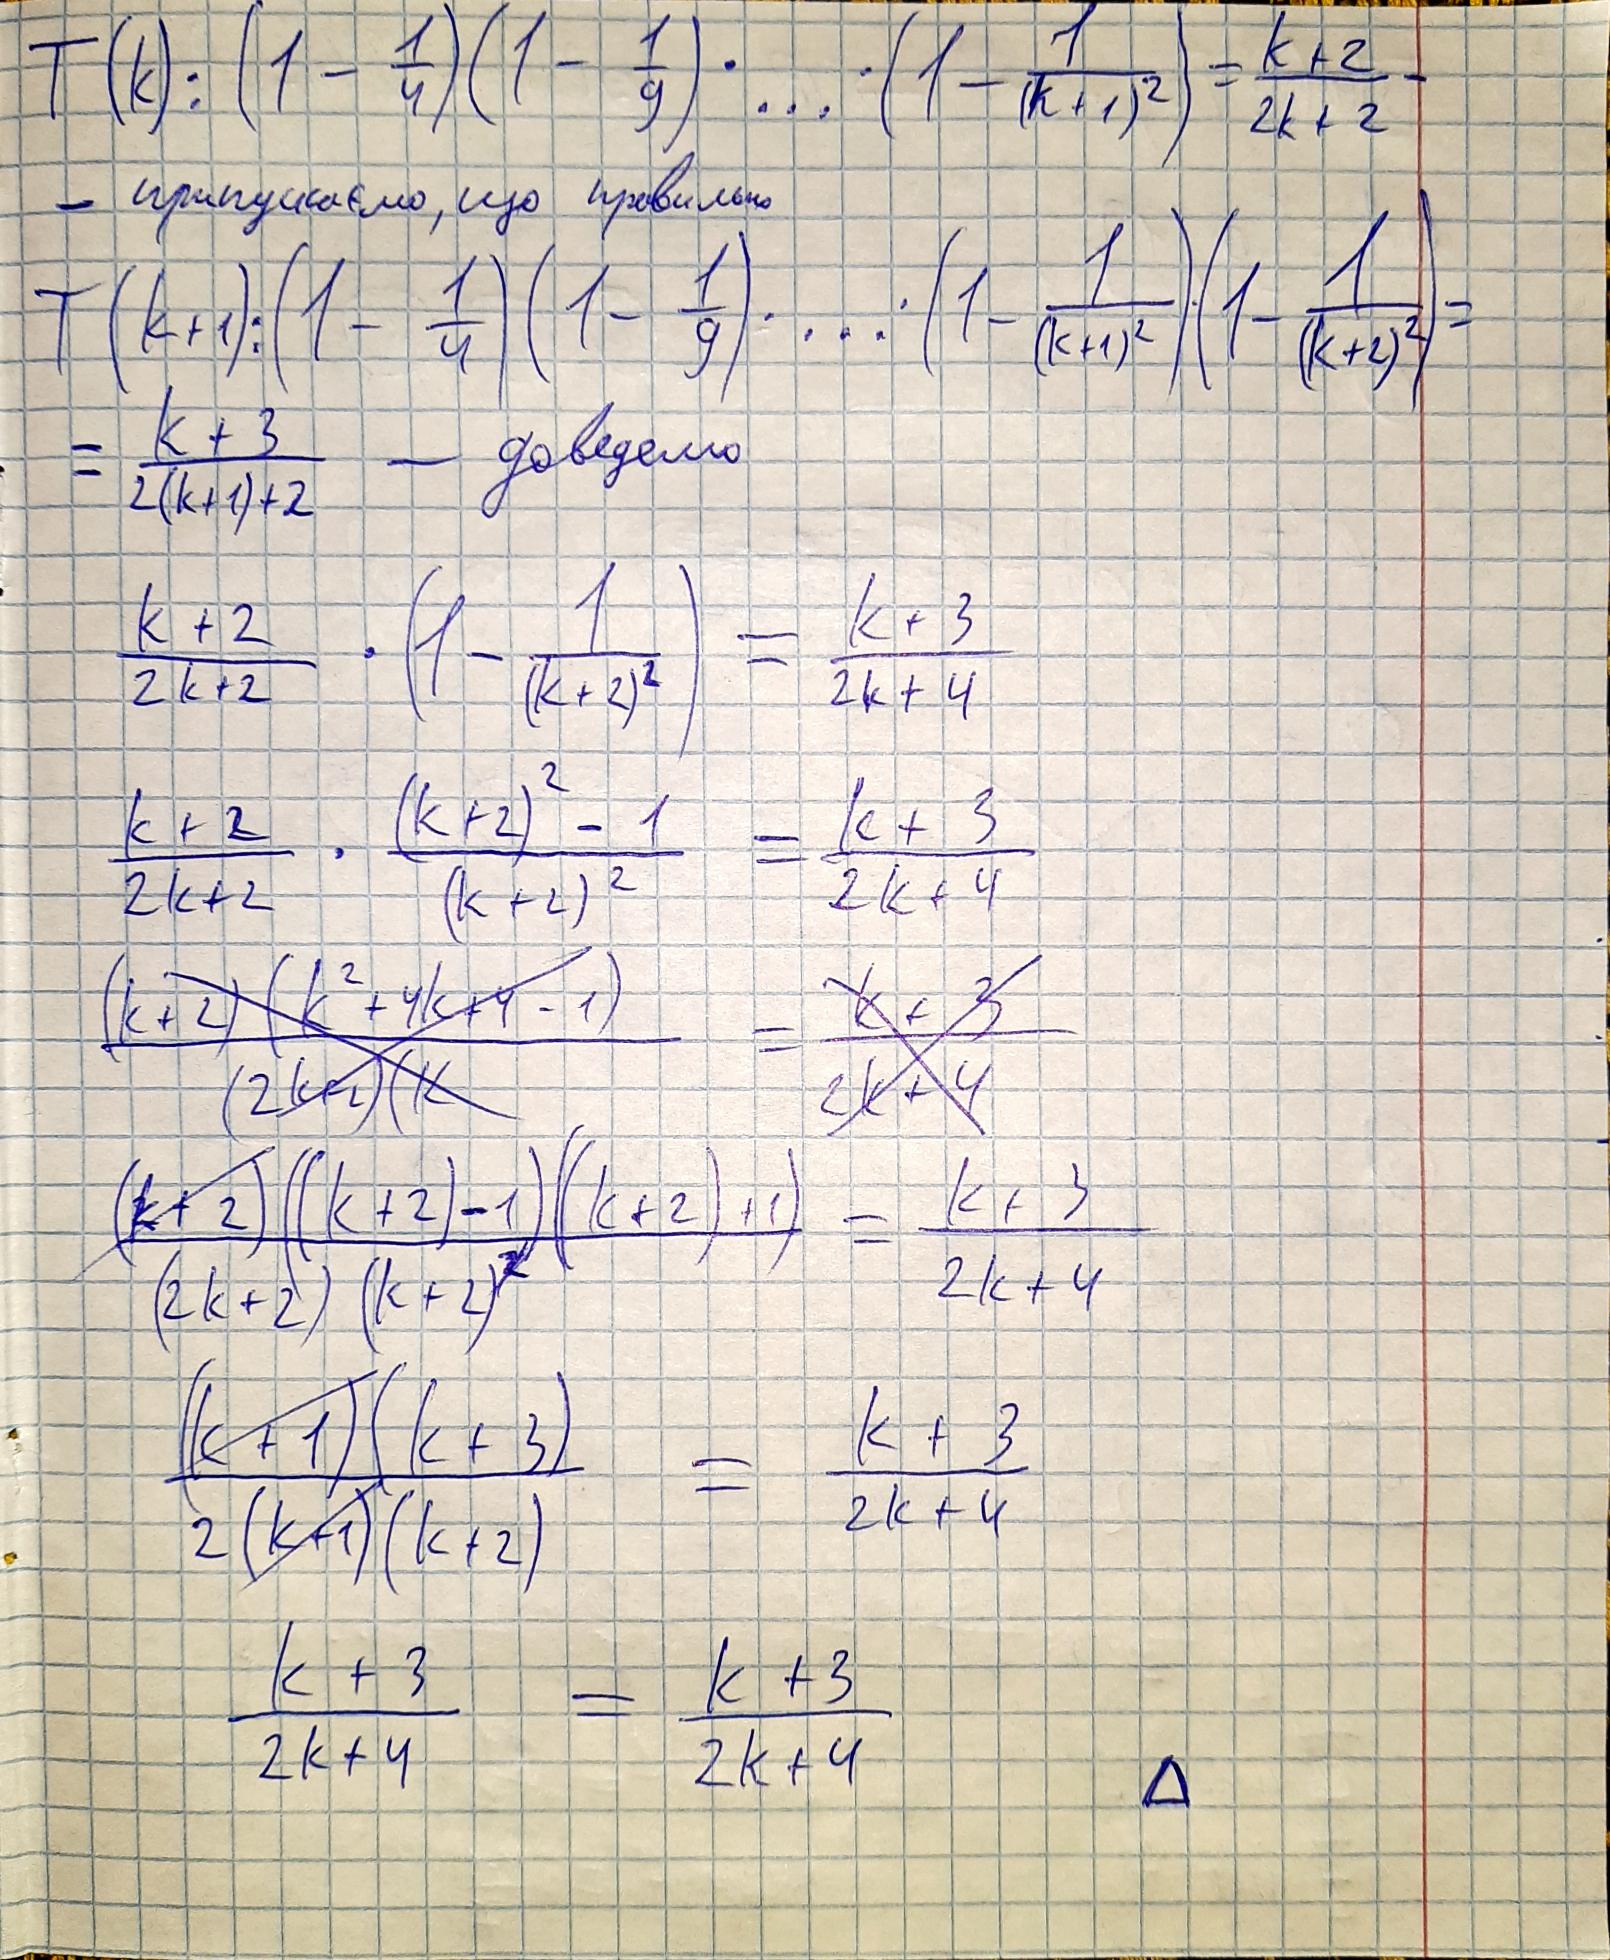 T(k): (1 - 1/4)(1 - 1/9) · ... · (1 - 1/(k+1)²) = (k+2)/(2k+2) -
- припускаємо, що правильно
T(k+1): (1 - 1/4)(1 - 1/9) · ... · (1 - 1/(k+1)²)(1 - 1/(k+2)²) =
= (k+3)/(2(k+1)+2) — доведемо
(k+2)/(2k+2) · (1 - 1/(k+2)²) = (k+3)/(2k+4)
(k+2)/(2k+2) · ((k+2)² - 1)/(k+2)² = (k+3)/(2k+4)
(k+2)(k²+4k+4-1)/((2k+2)(k = (k+3)/(2k+4)
(k+2)((k+2)-1)((k+2)+1)/((2k+2)(k+2)²) = (k+3)/(2k+4)
(k+1)(k+3)/(2(k+1)(k+2)) = (k+3)/(2k+4)
(k+3)/(2k+4) = (k+3)/(2k+4)
Δ